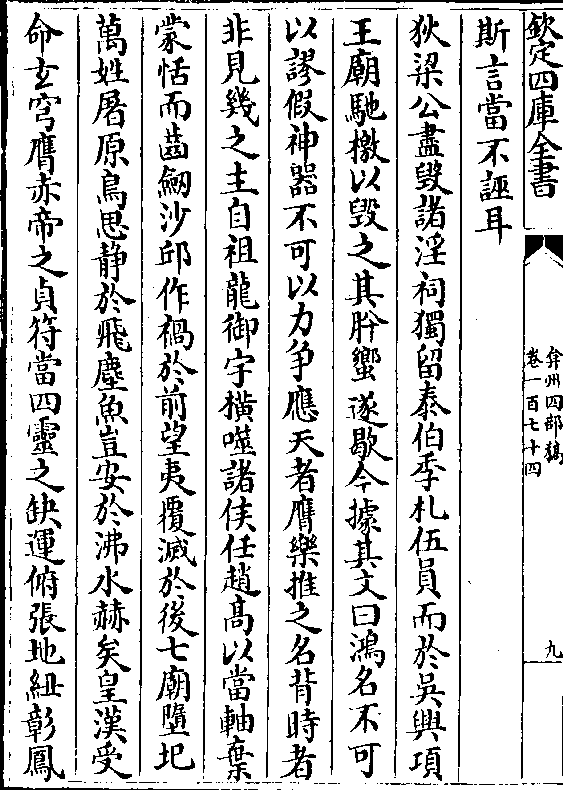 欽定四庫全書
弇州四部稿
卷一百七十四
九
斯言當不誣耳
狄梁公盡毀諸淫祠獨留泰伯季札伍員而於吳興項
王廟馳檄以毀之其肸蠁遂歇今據其文曰鴻名不可
以謬假神器不可以力爭應天者膺樂推之名背時者
非見幾之主自祖龍御宇橫噬諸侯任趙髙以當軸棄
蒙恬而齒劒沙邱作禍於前望夷覆滅於後七廟墮圯
萬姓屠原鳥思静於飛塵魚豈安於沸水赫矣皇漢受
命玄穹膺赤帝之貞符當四靈之缺運俯張地紐彰鳳